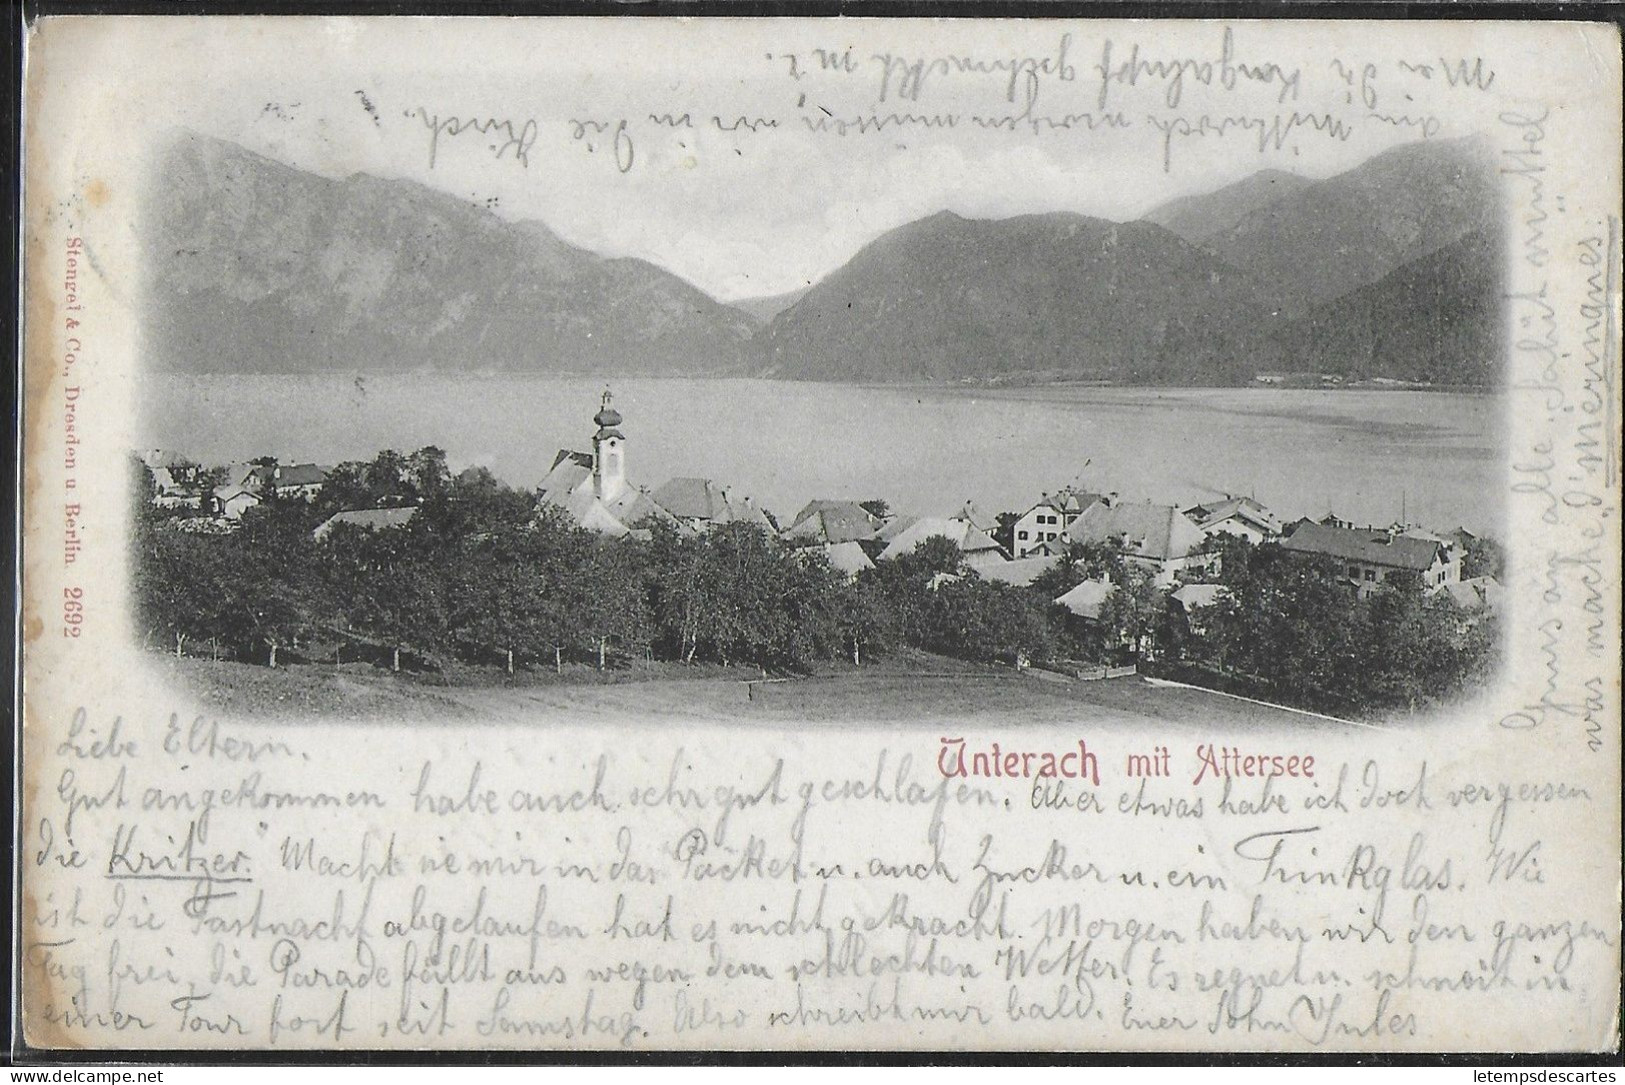 Mei die Kongalupf geschmeckt m i.
ein Mittwoch morgen müssen wir in die Kirch.
Stengel & Co., Dresden u. Berlin 2692
Unterach mit Attersee
Liebe Eltern.
Gut angekommen habe auch sehr gut geschlafen. Aber etwas habe ich doch vergessen
die "Kritzer". Macht sie mir in das Päcket u. auch Zucker u. ein Trinkglas. Wie
ist die Fastnacht abgelaufen hat es nicht gekracht. Morgen haben wir den ganzen
Tag frei, die Parade fällt aus wegen dem schlechten Wetter. Es regnet u. schneit in
einer Tour fort seit Samstag. Also schreibt mir bald. Euer Sohn Jules
Grus an alle
was mache d'
letempsdescartes